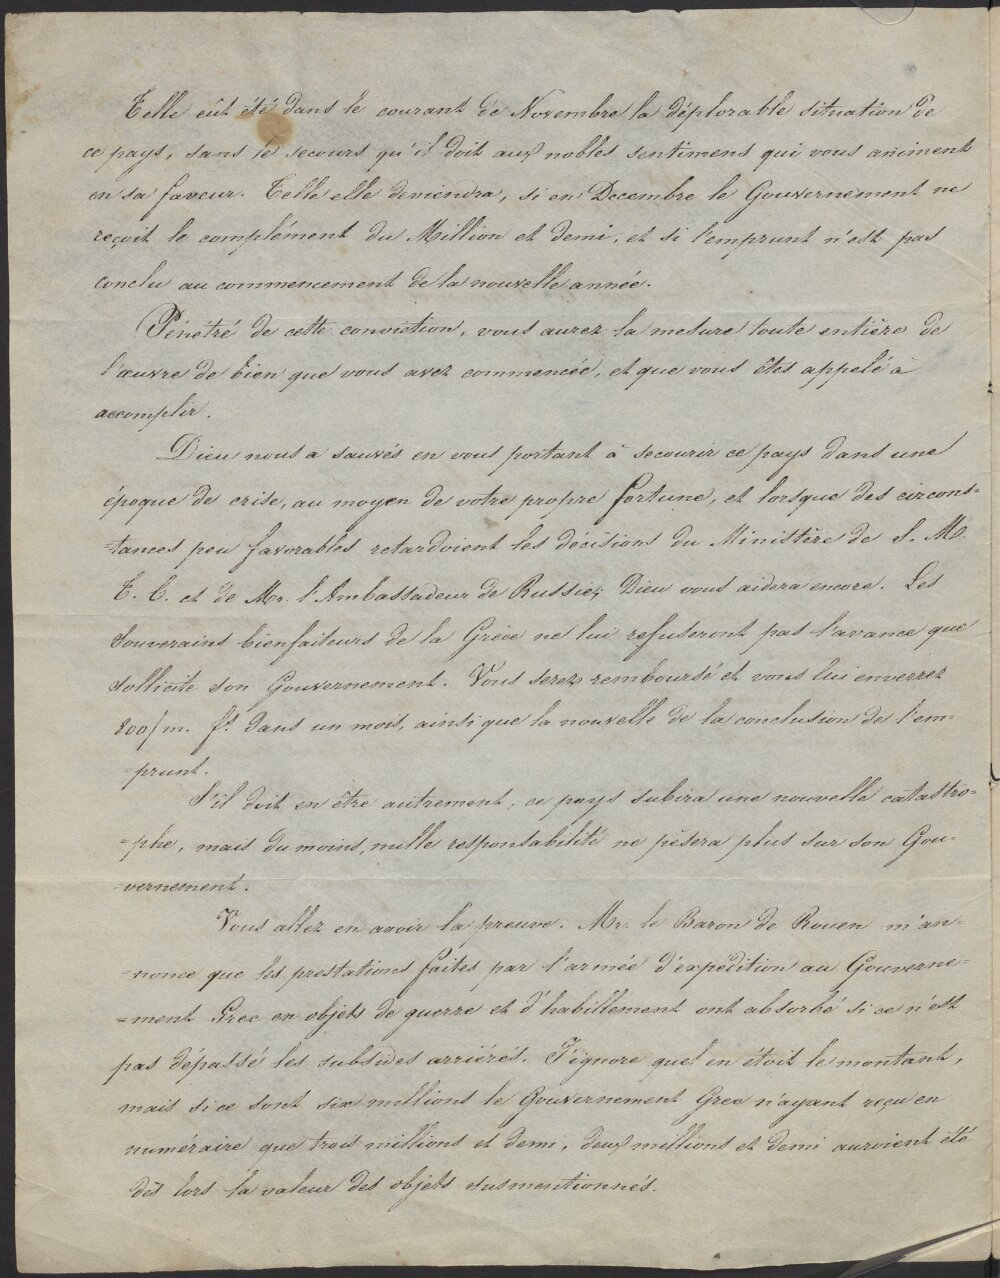 Telle eût été dans le courant de Novembre la déplorable situation de
ce pays, sans le secours qu'il doit aux nobles sentimens qui vous animent
en sa faveur. Telle elle deviendra, si en Decembre le Gouvernement ne
reçoit le complément du Million et demi, et si l'emprunt n'est pas
conclu au commencement de la nouvelle année.
Pénétré de cette conviction, vous aurez la mesure toute entière de
l'œuvre de bien que vous avez commencée, et que vous êtes appelé à
accomplir.
Dieu nous a sauvés en vous portant à secourir ce pays dans une
époque de crise, au moyen de votre propre fortune, et lorsque des circons=
=tances peu favorables retardoient les décisions du Ministère de S. M.
T. C. et de Mr. l'Ambassadeur de Russie; Dieu vous aidera encore. Les
Souverains bienfaiteurs de la Grèce ne lui refuseront pas l'avance que
sollicite son Gouvernement. Vous serez remboursé et vous lui enverrez
800/m. fs. dans un mois, ainsi que la nouvelle de la conclusion de l'em=
=prunt.
S'il doit en être autrement, ce pays subira une nouvelle catastro=
=phe, mais du moins, nulle responsabilité ne pèsera plus sur son Gou=
=vernement.
Vous allez en avoir la preuve. Mr. le Baron de Rouen m'an=
=nonce que les prestations faites par l'armée d'expédition au Gouverne=
=ment Grec en objets de guerre et d'habillement ont absorbé si ce n'est
pas dépassé les subsides arriérés. J'ignore quel en étoit le montant,
mais si ce sont six millions le Gouvernement Grec n'ayant reçu en
numéraire que trois millions et demi, deux millions et demi auroient été
dès lors la valeur des objets susmentionnés.